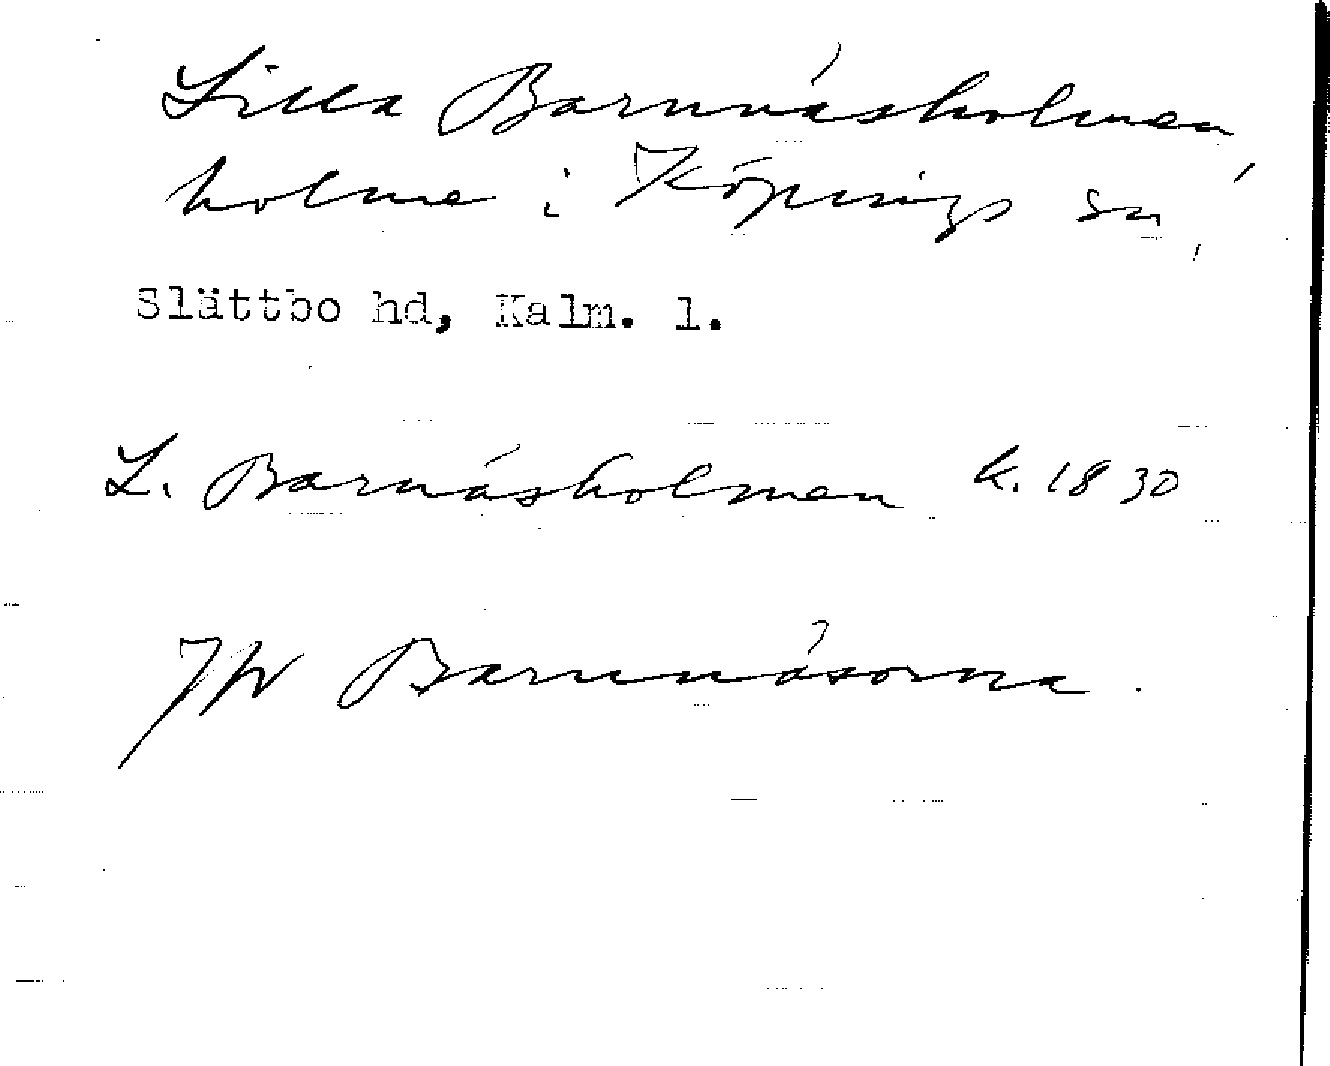 Lilla Barnnåsholmen,
holme i Köpings sn,
Slättbo hd, Kalm. l.
L. Barnåsholmen k. 1830
Jfr Barnnåsorna.